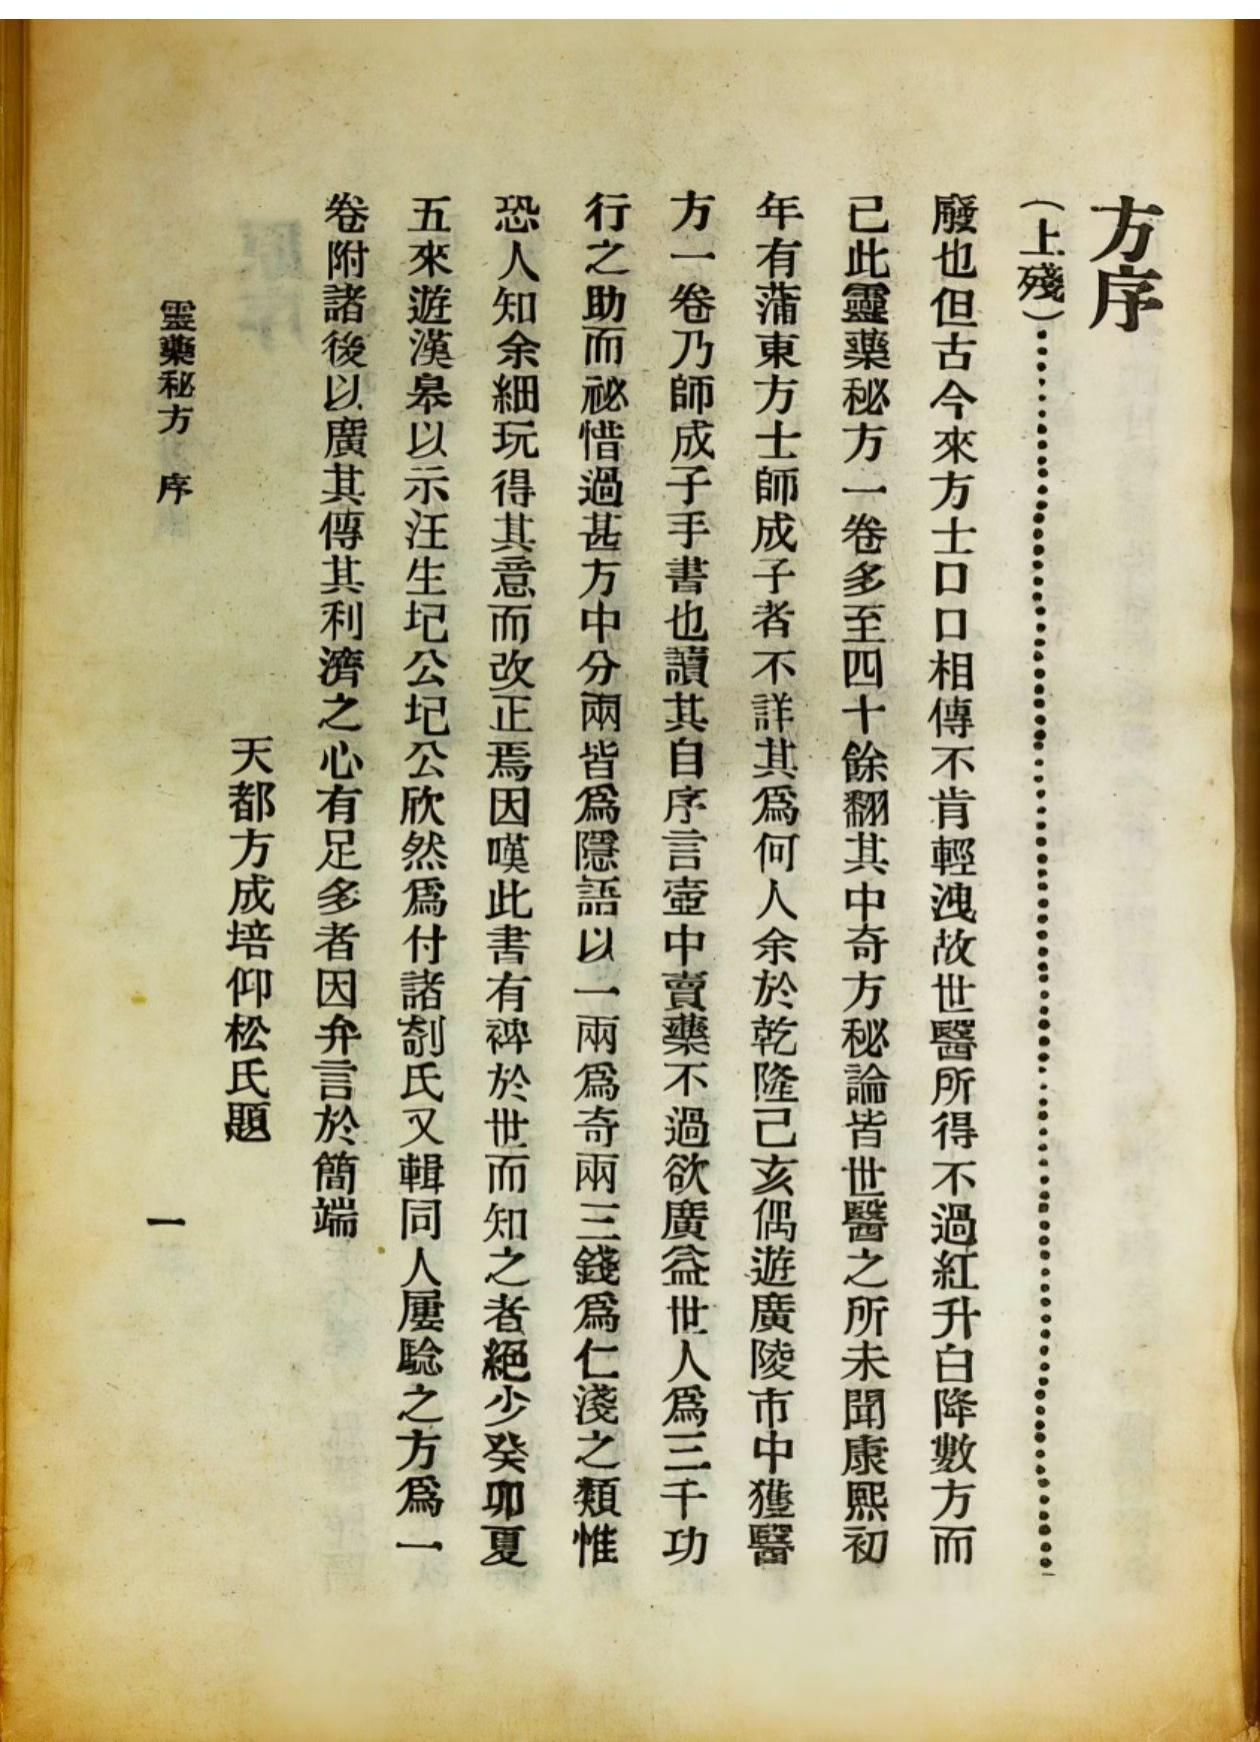 方序
(上殘)……………………………………
廢也但古今來方士口口相傳不肯輕洩故世醫所得不過紅升白降數方而
已此靈藥秘方一卷多至四十餘翻其中奇方秘論皆世醫之所未聞康熙初
年有蒲東方士師成子者不詳其爲何人余於乾隆己亥偶遊廣陵市中獲醫
方一卷乃師成子手書也讀其自序言壺中賣藥不過欲廣益世人爲三千功
行之助而祕惜過甚方中分兩皆爲隱語以一兩爲奇兩三錢爲仁淺之類惟
恐人知余細玩得其意而改正焉因嘆此書有裨於世而知之者絕少癸卯夏
五來遊漢皋以示汪生圮公圮公欣然爲付諸剞氏又輯同人屢騐之方爲一
卷附諸後以廣其傳其利濟之心有足多者因弁言於簡端
天都方成培仰松氏題
靈藥秘方 序
一